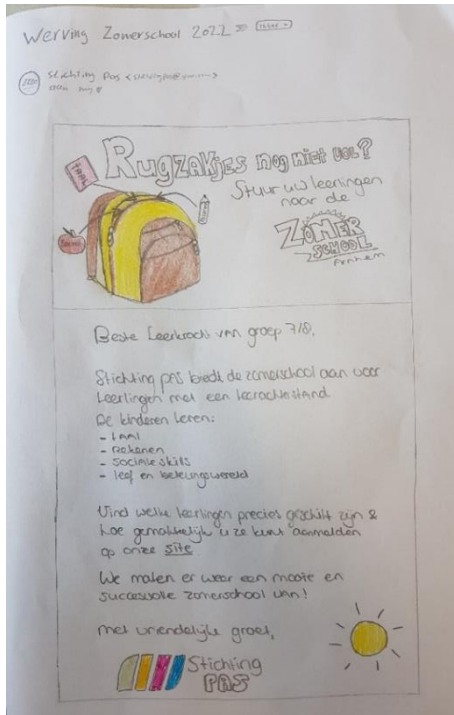 Werving Zomerschool 2022
Stichting Pas
aan mij
Rugzakjes nog niet vol?
Stuur uw leerlingen
naar de
ZOMER
SCHOOL
Arnhem
TAAL
Beste Leerkracht van groep 7/8,
Stichting PAS biedt de zomerschool aan voor
Leerlingen met een leerachterstand.
De kinderen leren:
- TAAL
- Rekenen
- Sociale skills
- leef en belevingswereld
Vind welke leerlingen precies geschikt zijn &
hoe gemakkelijk u ze kunt aanmelden
op onze site
We maken er weer een mooie en
succesvolle zomerschool van!
Met vriendelijke groet,
Stichting
PAS